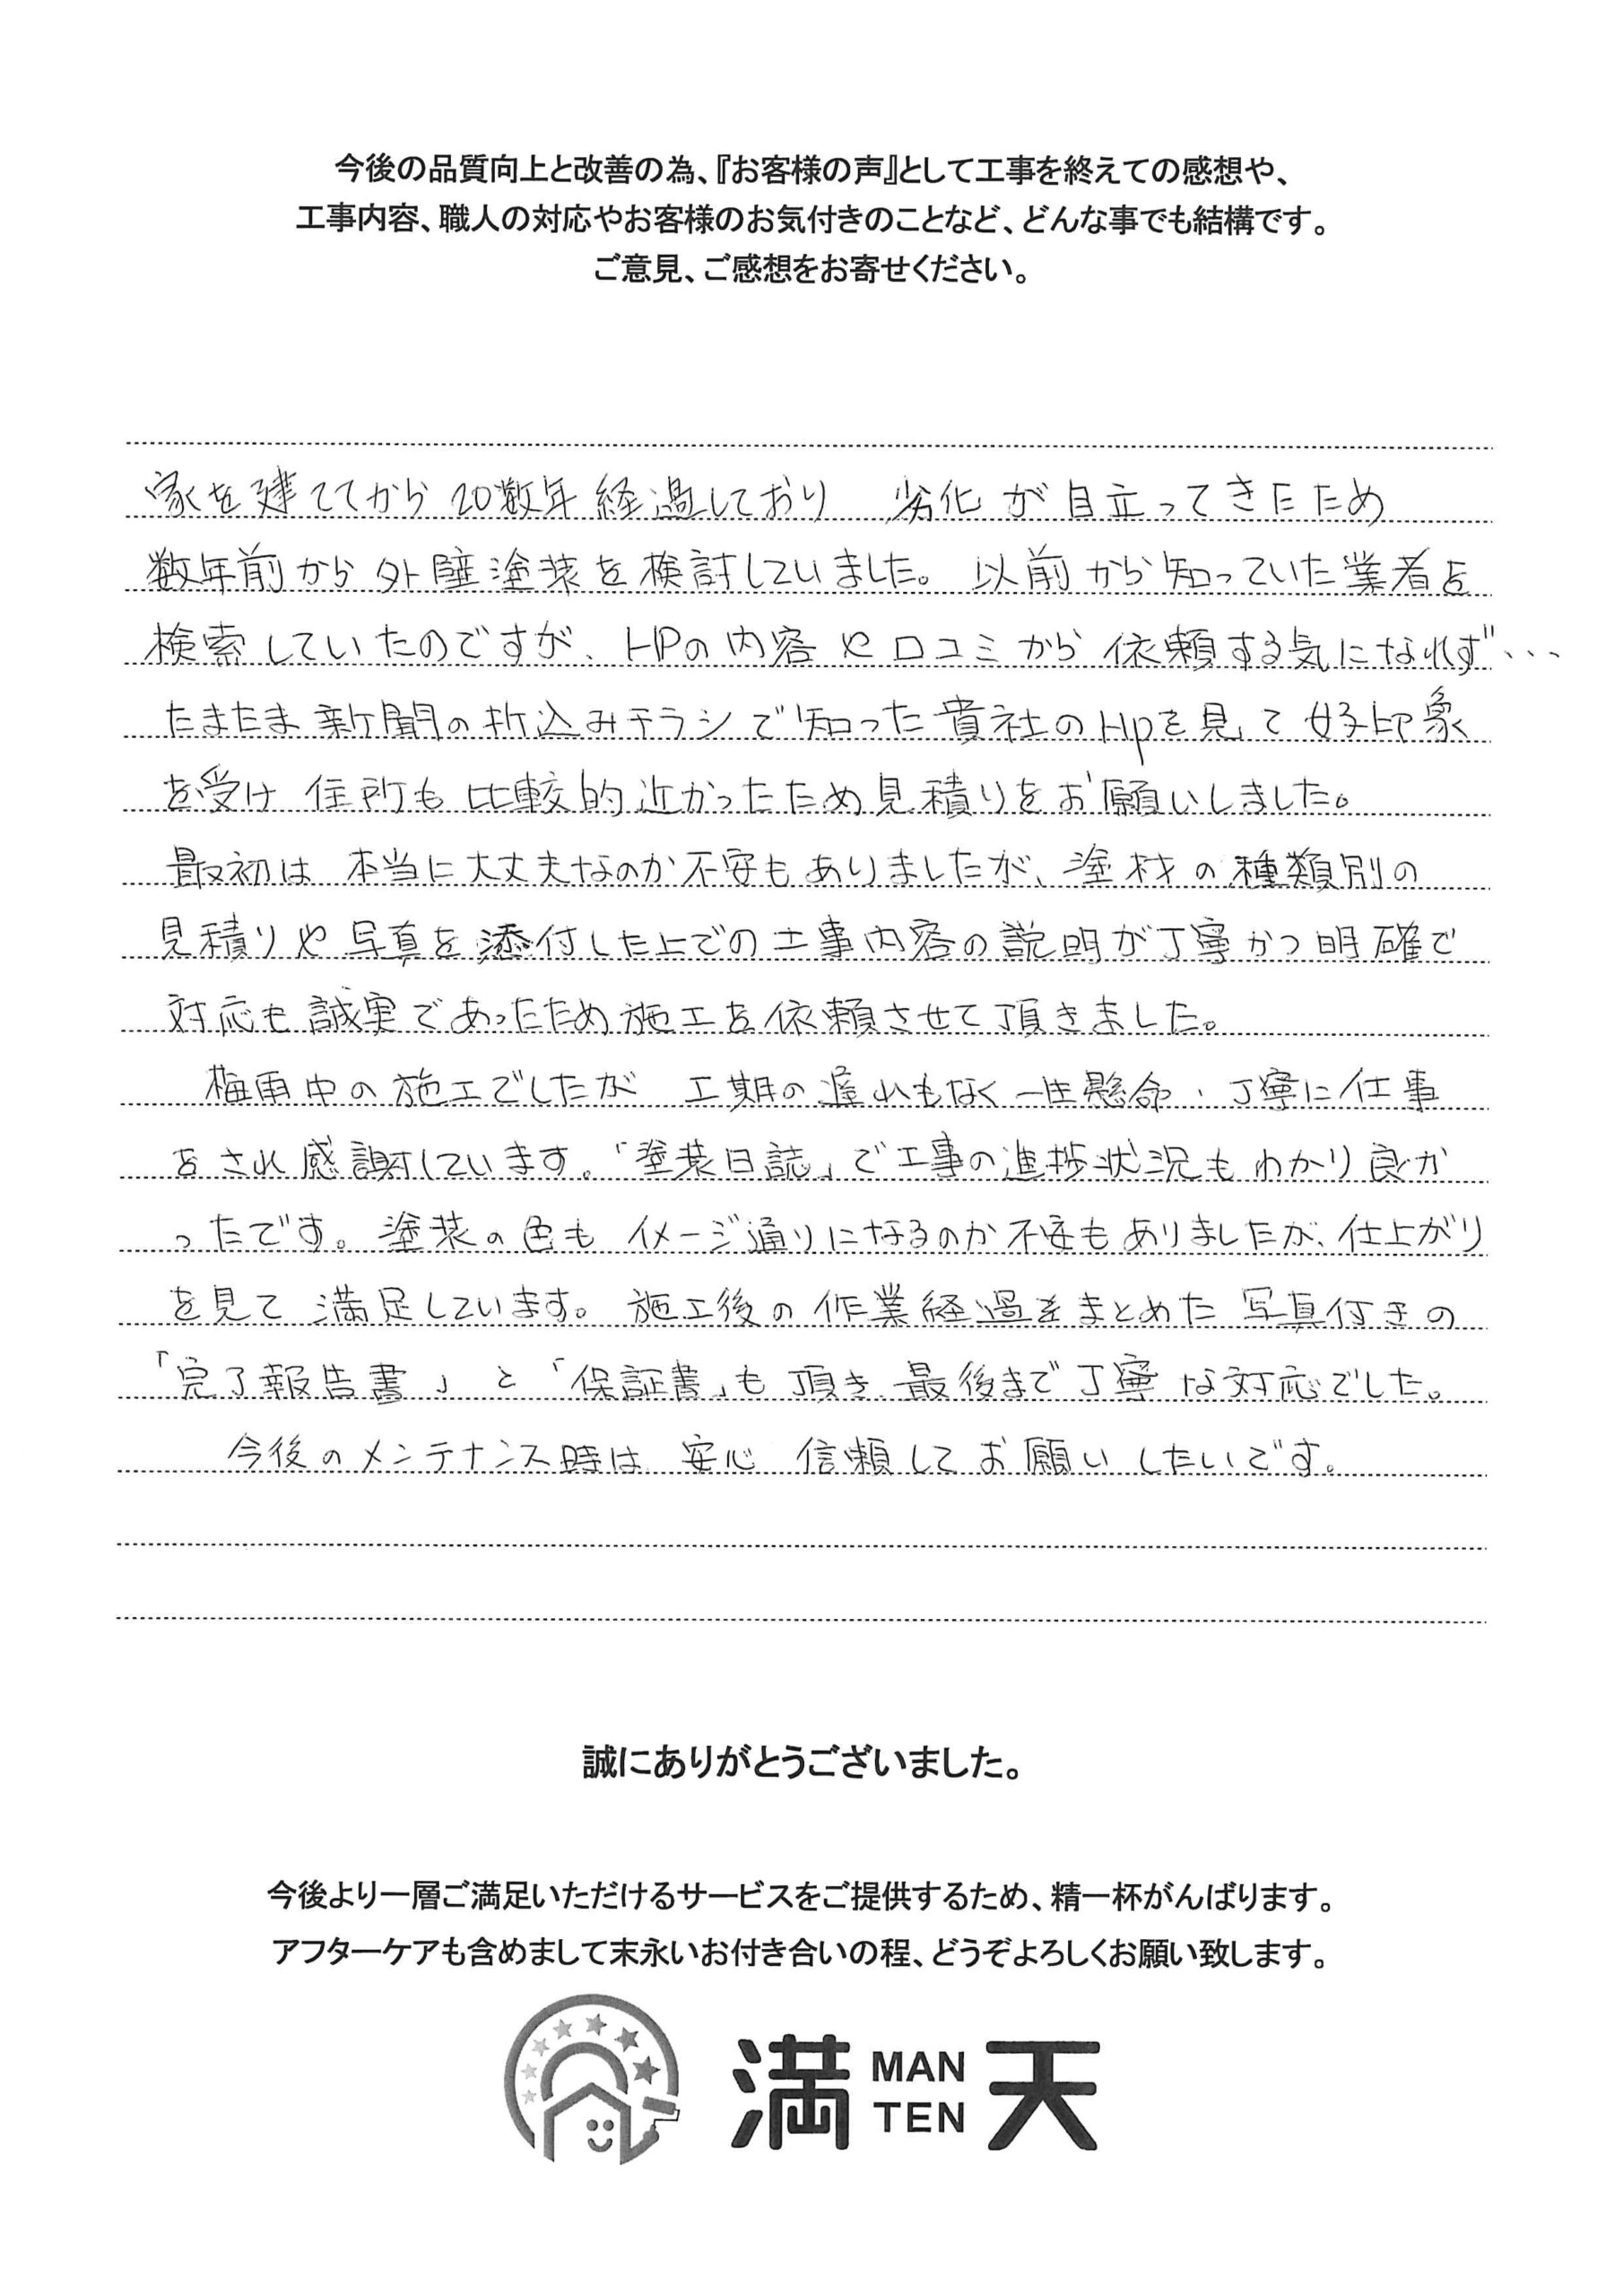 今後の品質向上と改善の為、『お客様の声』として工事を終えての感想や、
工事内容、職人の対応やお客様のお気付きのことなど、どんな事でも結構です。
ご意見、ご感想をお寄せください。
家を建ててから20数年経過しており 劣化が目立ってきたため
数年前から外壁塗装を検討していました。以前から知っていた業者を
検索していたのですが、HPの内容や口コミから依頼する気になれず…
たまたま新聞の折込みチラシで知った貴社のHpを見て好印象
を受け住所も比較的近かったため見積りをお願いしました。
最初は本当に大丈夫なのか不安もありましたが、塗材の種類別の
見積りや写真を添付した上での工事内容の説明が丁寧かつ明確で
対応も誠実であったため施工を依頼させて頂きました。
梅雨中の施工でしたが 工期の遅れもなく一生懸命、丁寧に仕事
をされ感謝しています。「塗装日誌」で工事の進捗状況もわかり良か
ったです。塗装の色もイメージ通りになるのか不安もありましたが、仕上がり
を見て満足しています。施工後の作業経過をまとめた写真付きの
「完了報告書」と「保証書」も頂き最後まで丁寧な対応でした。
今後のメンテナンス時は安心 信頼してお願いしたいです。
誠にありがとうございました。
今後より一層ご満足いただけるサービスをご提供するため、精一杯がんばります。
アフターケアも含めまして末永いお付き合いの程、どうぞよろしくお願い致します。
満 MAN TEN 天